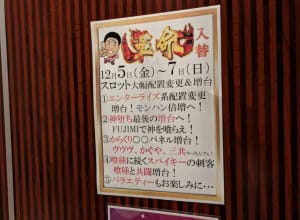 革命
入替
12月5日(金)~7日(日)
スロット大幅配置変更&増台
①エンターライズ系配置変更
増台!モンハン倍増へ!
②神堕ち最後の増台へ!
FUJIMIで神を喰らえ!
③からくり○○パネル増台!
ヴヴヴ、かぐや、三共
④喰種に続くスパイキーの刺客
喰種と共闘増台!
⑤バラエティーもお楽しみに…